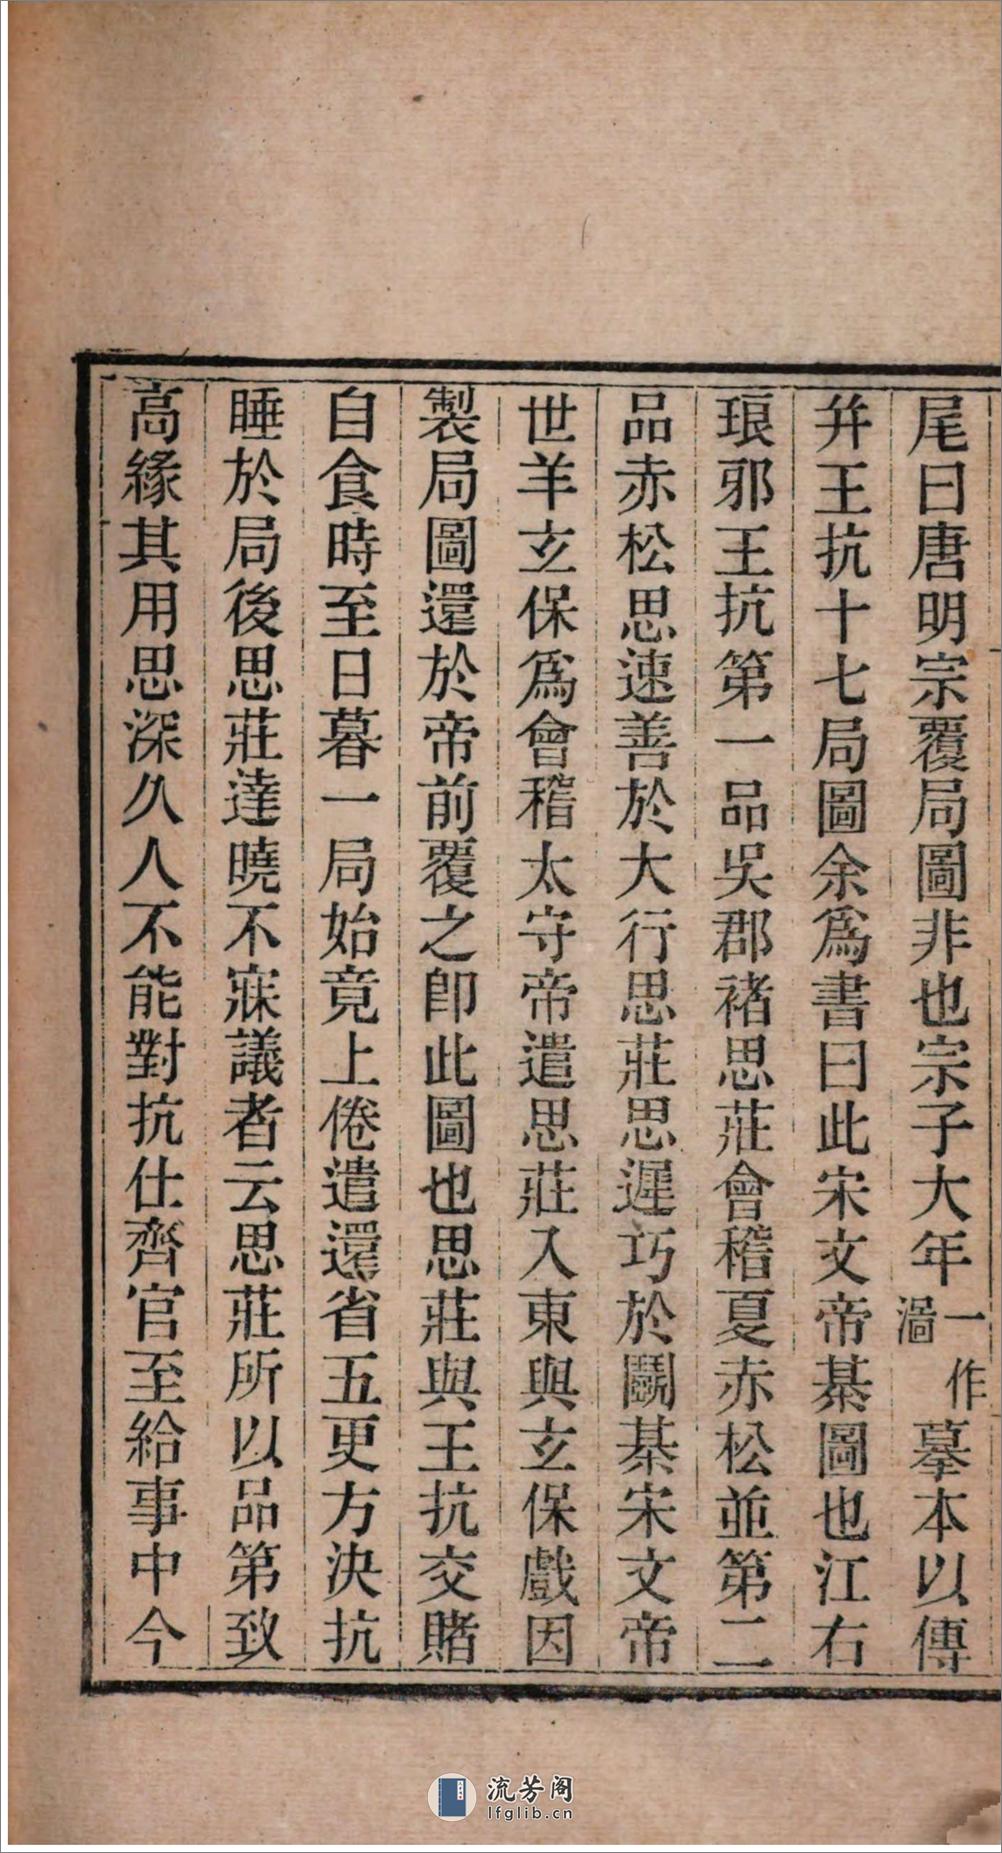 尾曰唐明宗覆局圖非也宗子大年一作濄摹本以傳
并王抗十七局圖余爲書曰此宋文帝棊圖也江右
琅邪王抗第一品吳郡褚思莊會稽夏赤松並第二
品赤松思速善於大行思莊思遲巧於鬭棊宋文帝
世羊玄保爲會稽太守帝遣思莊入東與玄保戲因
製局圖還於帝前覆之卽此圖也思莊與王抗交賭
自食時至日暮一局始竟上倦遣還省五更方決抗
睡於局後思莊達曉不寐議者云思莊所以品第致
高緣其用思深久人不能對抗仕齊官至給事中今
流芳阁
lfglib.cn